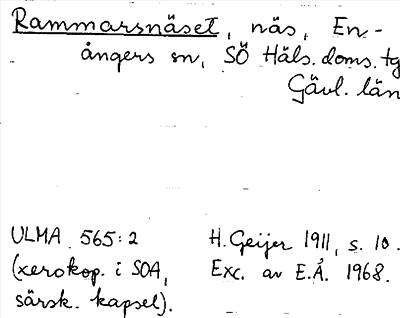 Rammarsnäset, näs, En-
ångers sn, SÖ Häls. doms. tg
Gävl. län
ULMA 565:2 H. Geijer 1911, s. 10.
(xerokop. i SOA, Exc. av E.Å. 1968.
särsk. kapsel).